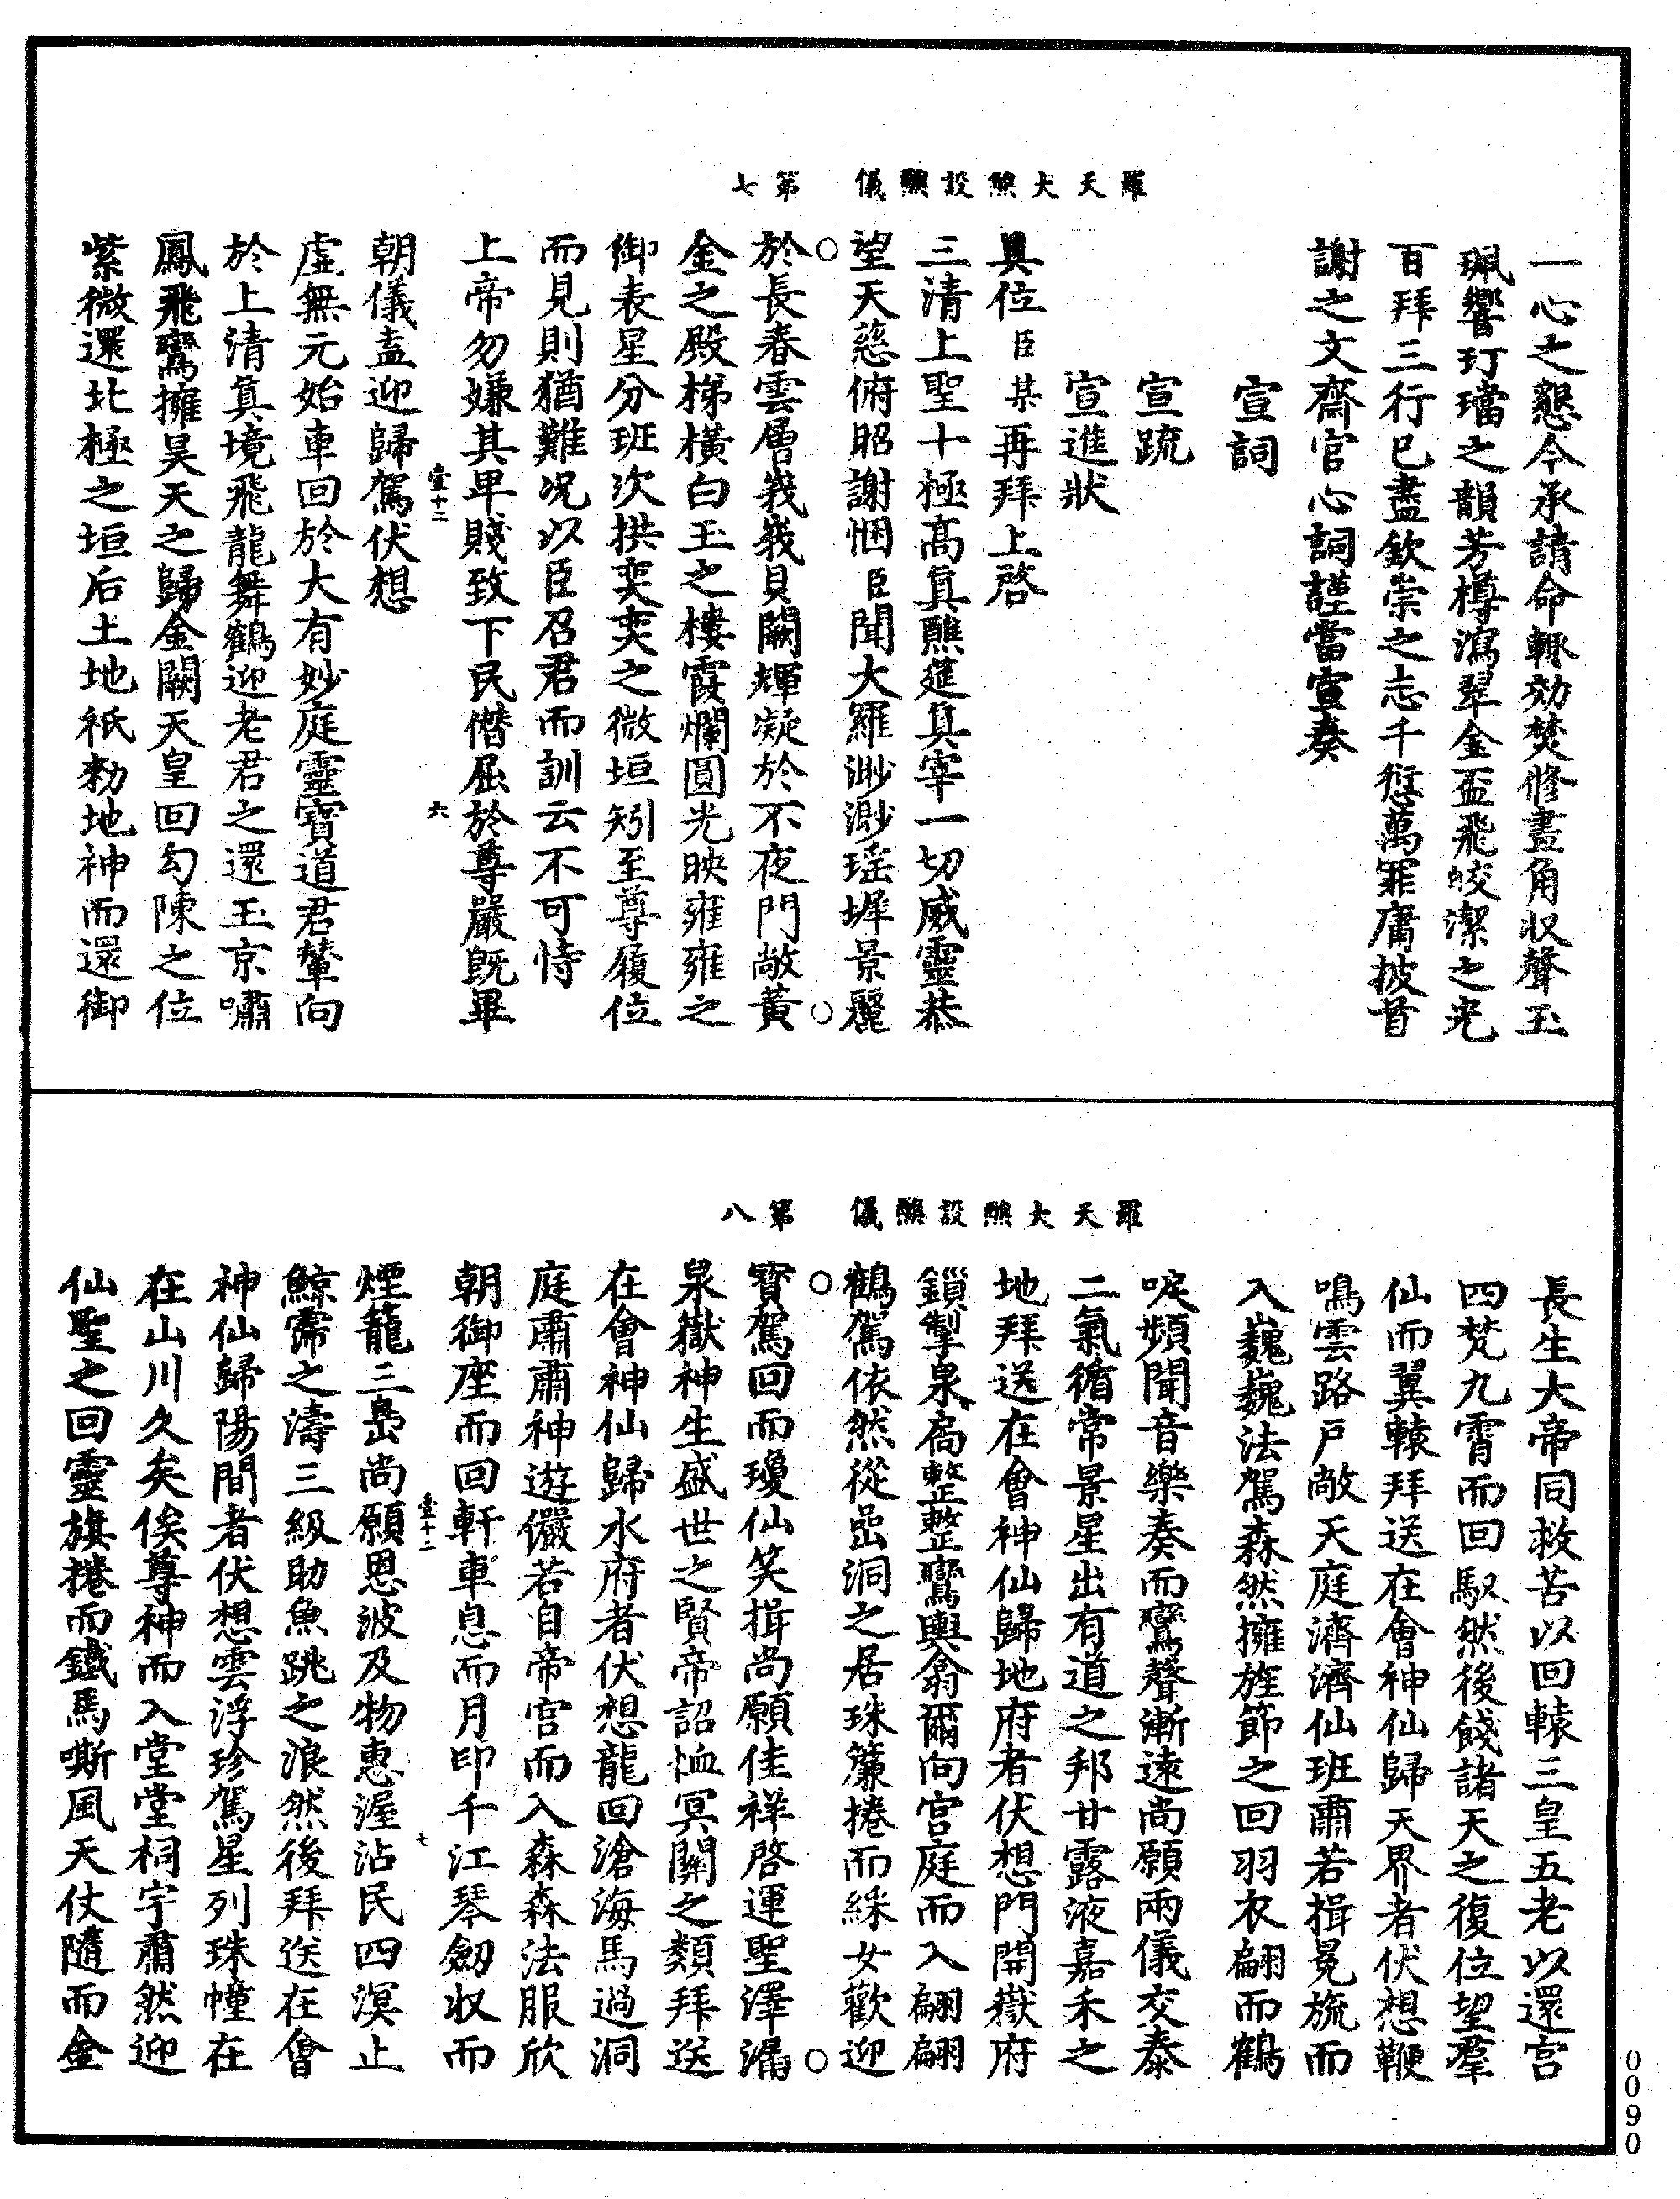 羅天大醮設醮儀　第七
一心之懇今承請命輙効焚修晝角収聲玉
珮響玎璫之韻芳樽瀉翠金盃飛皎潔之光
百拜三行已盡欽崇之志千愆萬罪庸披首
謝之文齋官心詞謹當宣奏
宣詞
宣疏
宣進狀
具位臣某再拜上啓
三清上聖十極高真醮筵真宰一切威靈恭
望天慈俯昭謝悃臣聞大羅渺渺瑶墀景麗
於長春雲層峩峩貝闕輝凝於不夜門敞黄
金之殿梯橫白玉之樓霞爛圓光映雍雍之
御表星分班次拱奕奕之微垣矧至尊履位
而見則猶難况以臣召君而訓云不可恃
上帝勿嫌其卑賤致下民僭屈於尊嚴既畢
壹十二　六
朝儀盍迎歸駕伏想
虛無元始車回於大有妙庭靈寶道君輦向
於上清真境飛龍舞鶴迎老君之還玉京嘯
鳳飛鸞擁昊天之歸金闕天皇回勾陳之位
紫微還北極之垣后土地祇勑地神而還御
羅天大醮設醮儀　第八
長生大帝同救苦以回轅三皇五老以還宫
四梵九霄而回馭然後餞諸天之復位望羣
仙而翼轅拜送在會神仙歸天界者伏想鞭
鳴雲路戸敞天庭濟濟仙班肅若揖冕旒而
入巍巍法駕森然擁旌節之回羽衣翩而鶴
唳頻聞音樂奏而鸞聲漸遠尚願兩儀交泰
二氣循常景星出有道之邦甘露液嘉禾之
地拜送在會神仙歸地府者伏想門開嶽府
鎖掣泉扃整整鸞輿翕爾向宫庭而入翩翩
鶴駕依然從嵒洞之居珠簾捲而綵女歡迎
寳駕回而瓊仙笑揖尚願佳祥啓運聖澤漏
泉嶽神生盛世之賢帝詔恤冥關之類拜送
在會神仙歸水府者伏想龍回滄海馬過洞
庭肅肅神遊儼若自帝宫而入森森法服欣
朝御座而回軒車息而月印千江琴劒収而
壹十二　七
煙籠三島尚願恩波及物惠渥沾民四溟止
鯨䨓之濤三級助魚跳之浪然後拜送在會
神仙歸陽間者伏想雲浮珍駕星列珠幢在
在山川久矣俟尊神而入堂堂祠宇肅然迎
仙聖之回靈旗捲而鐵馬嘶風天仗隨而金
0090